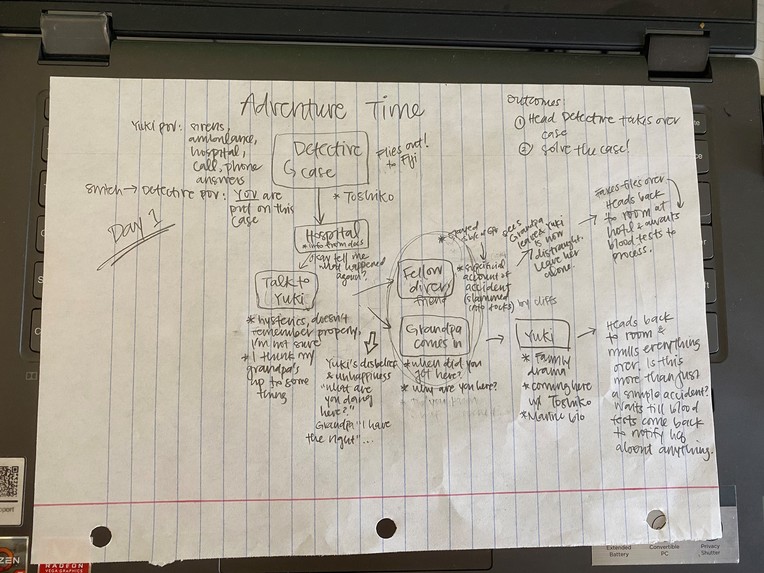 Adventure Time
Yuki pov: sirens,
ambulance,
hospital,
call, phone
answers
Switch → Detective pov: You are
put on this
case
Day 1
Detective
G case
Flies out!
to Fiji
* Toshiko
Hospital
* info from docs
okay tell me
what happened
again?
Talk to
Yuki
* hysterics, doesn't
remember properly,
I'm not sure
* I think my
grandpa's
up to some
thing
Yuki's disbelief
& unhappiness
"what are
you doing
here?"
Grandpa "I have
the right"...
Fellow
diver/
friend
* suspicious
account of
accident
(slammed
into rocks) by cliffs
sees
Grandpa
leave & Yuki
is now
distraught.
Leave her
alone.
Grandpa
comes in
* when did you
get here?
* why are you here?
Yuki
* Family
drama
* coming here
w/ Toshiko
* Marine bio
Outcomes:
① Head Detective takes over
case
② Solve the case!
Takes files over
Heads back
to room at
hotel & awaits
blood tests to
process.
Heads back
to room &
mulls everything
over. Is this
more than just
a simple accident?
Waits till blood
tests come back
to notify HQ
about anything.
RYZEN
RADEON
VEGA GRAPHICS
Extended
Battery
Convertible
PC
Privacy
Shutter